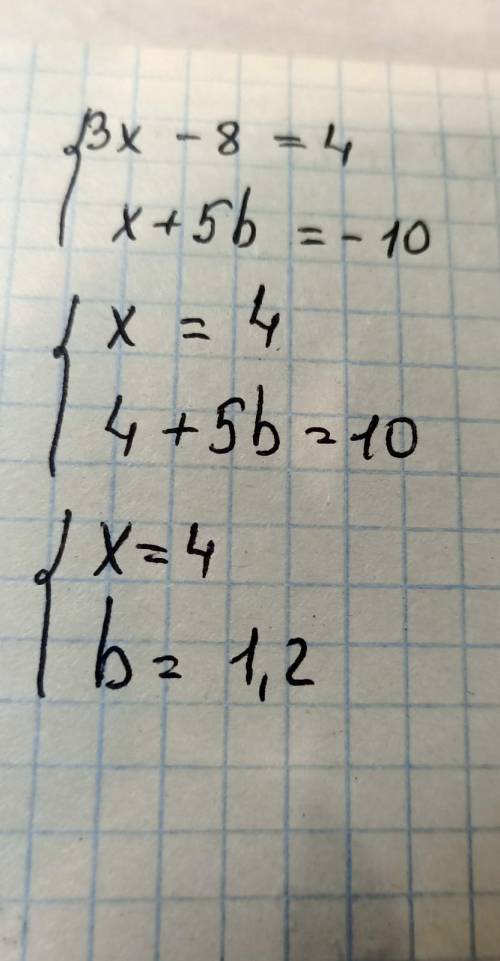 3x - 8 = 4
x + 5b = -10
x = 4
4 + 5b = 10
x = 4
b = 1,2